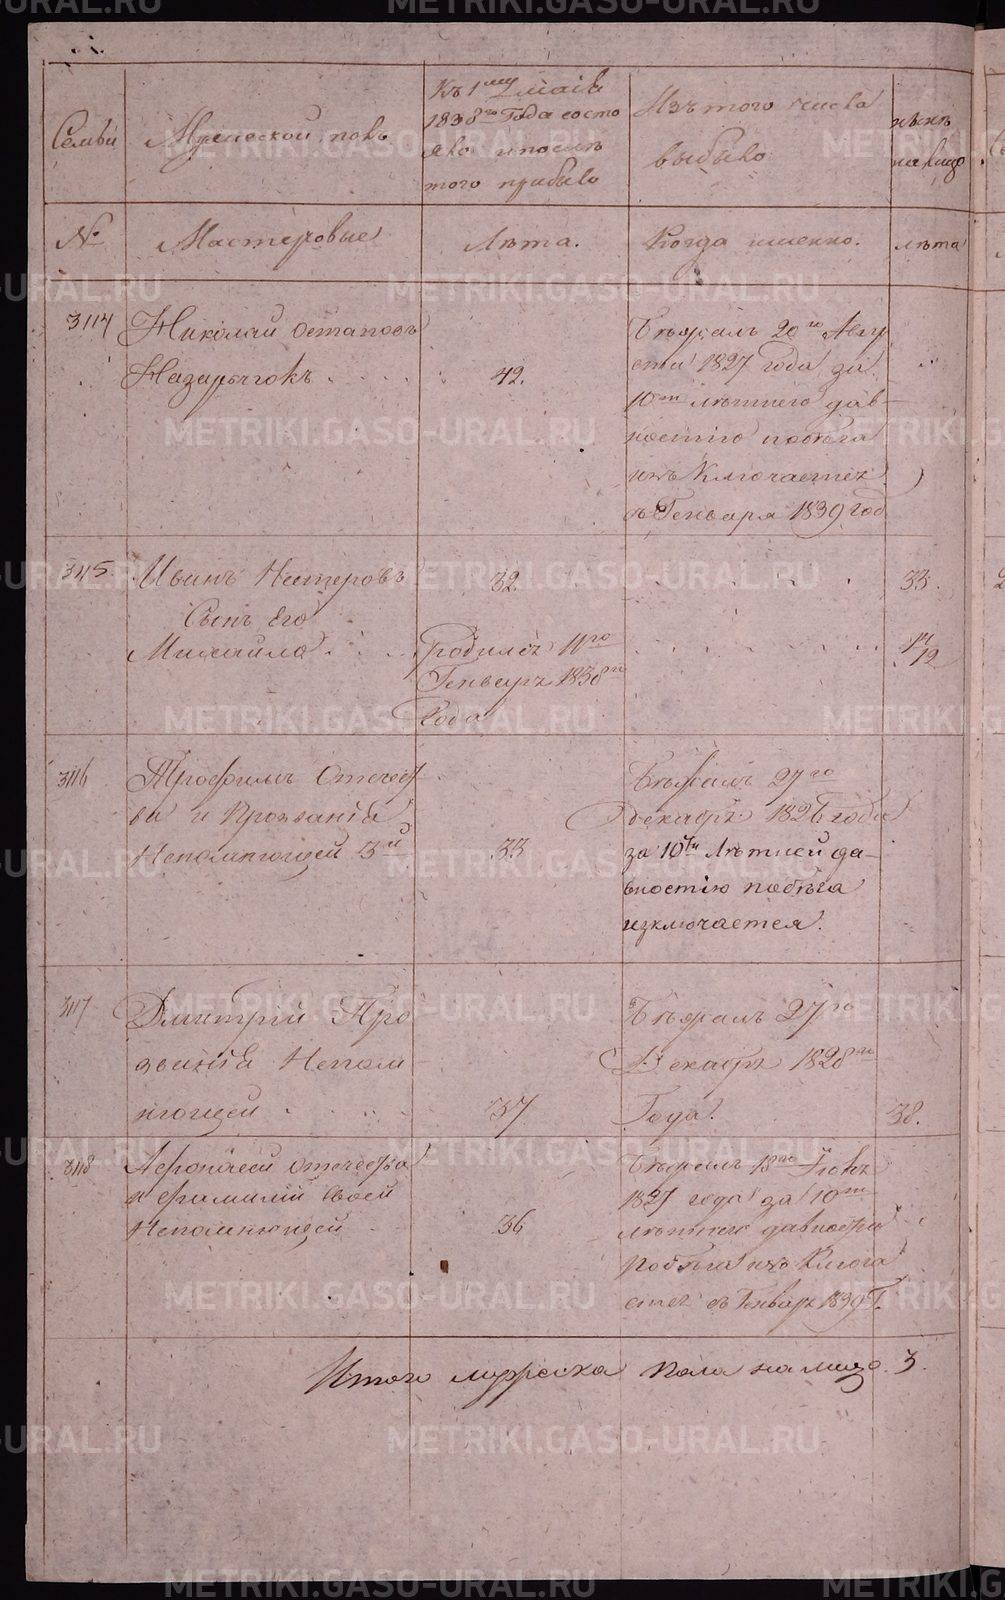 Семьи
Мужеской полъ
Къ 1му Маія
1838го Года состо
яло и послѣ
того прибыло
Изъ того числа
выбыло
нынѣ
на лицо
№
Мастеровые
Лѣта.
Когда именно.
лѣта
3114
Николай Остаповъ
Назарычокъ
42.
Бѣжалъ 20го Авгу
ста 1827 года за
10ти лѣтнею дав-
ностію побѣга
изъключается
съ Генваря 1839 год
3115
Иванъ Нестеровъ
32.
33.
Сынъ Его
Михайло
Родился 11го
Генваря 1838го
Года
3116
Трофимъ Отечест
ва и Прозванія
Непомнющей 3й
33
Бѣжалъ 27го
Декабря 1826 года
за 10ти Лѣтней да-
вностію побѣга
изключается.
3117
Дмитрій Про
званія Непом
нющей
37
Бѣжалъ 27го
Декабря 1828го
Года.
38.
3118
Афонасей Отечества
и фамиліи своей
Непомнющей
36
Бѣжалъ 13го Іюня
1827 года за 10ти
лѣтнею давностію
побѣга изъ Ключа
ется съ Генваря 1839 Г.
Итого мужеска пола на лицо 3.
METRIKI.GASO-URAL.RU